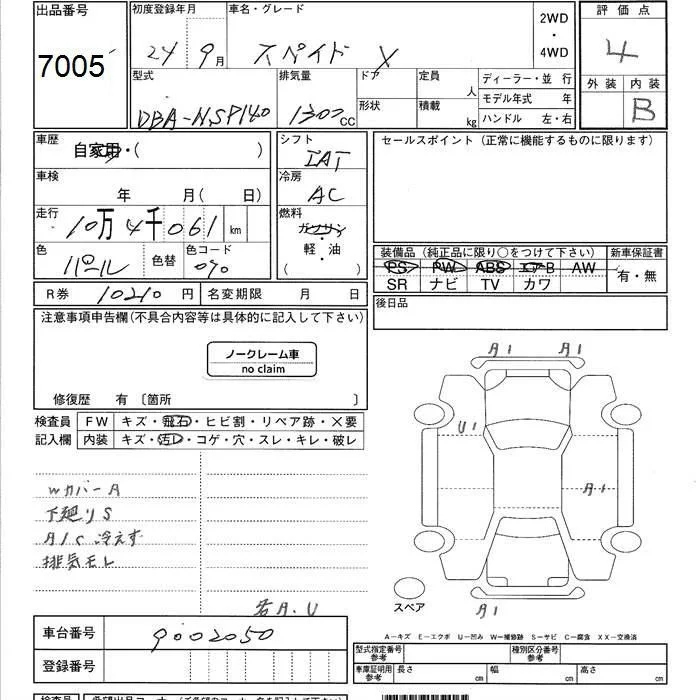 出品番号
7005
初度登録年月
24 9月
車名・グレード
スペイド X
2WD
・
4WD
評価点
4
外装 内装
B
型式
DBA-NSP140
排気量
1300cc
ドア
形状
定員
人
積載
kg
ディーラー・並 行
モデル年式 年
ハンドル 左・右
車歴
自家用・( )
車検
年 月( 日)
走行
10万4千061 km
色
パール
色替
色コード
070
シフト
IAT
冷房
AC
燃料
ガソリン
・
軽・油
( )
セールスポイント (正常に機能するものに限ります)
装備品 (純正品に限り○をつけて下さい)
PS PW ABS エアB AW
SR ナビ TV カワ
新車保証書
有・無
後日品
R券 10210 円
名変期限 月 日
注意事項申告欄(不具合内容等は具体的に記入して下さい)
ノークレーム車
no claim
修復歴 有 〔箇所 〕
検査員
記入欄
FW キズ・飛石・ヒビ割・リペア跡・X要
内装 キズ・汚レ・コゲ・穴・スレ・キレ・破レ
Wカバー A
下廻りS
A/C 冷えず
排気モレ
若A.U
A1 A1
U1
A1
A1
スペア
車台番号
9002050
登録番号
A-キズ E-エクボ U-凹み W-補修跡 S-サビ C-腐食 XX-交換済
型式指定番号
参考
種別区分番号
参考
車庫証明用
参考
長さ cm
幅 cm
高さ cm